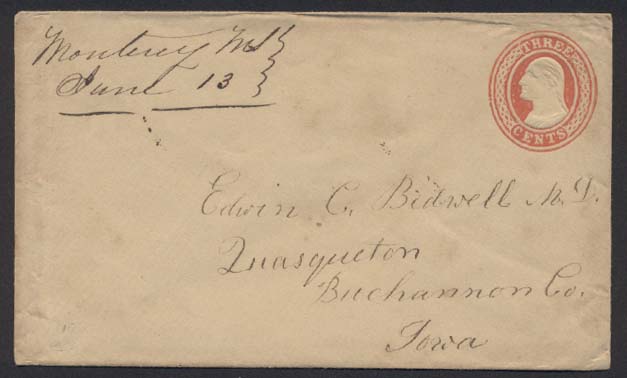 Monterey Ms
June 13
THREE
CENTS
Edwin C. Bidwell M.D.
Quasqueton
Buchannon Co.
Iowa